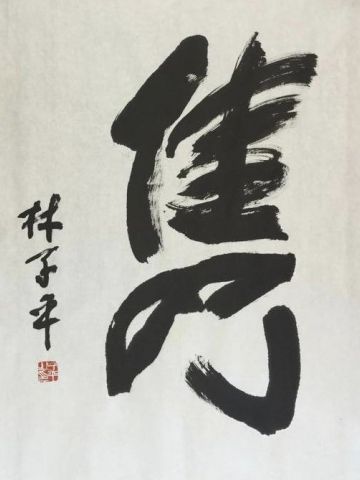 隽
林子平